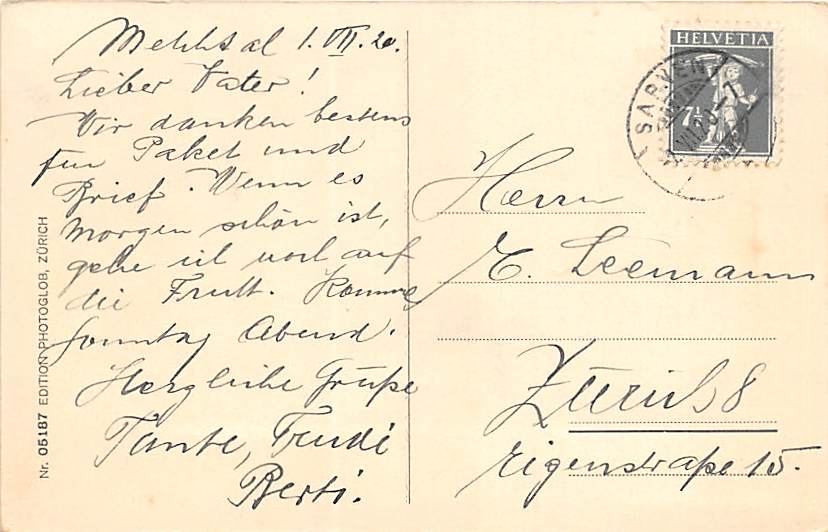 Melchtal 1. VII. 20.
Lieber Vater!
Wir danken bestens
für Paket und
Brief. Wenn es
morgen schön ist,
gehe ich wohl auf
die Frutt. Komme
Sonntag Abend.
Herzliche Grüße
Tante, Trudi
Berti.
HELVETIA
7½
SARNEN
Herrn
E. Leemann
Zürich 8
Eigenstraße 15.
Nr. 05187 EDITION PHOTOGLOB, ZÜRICH